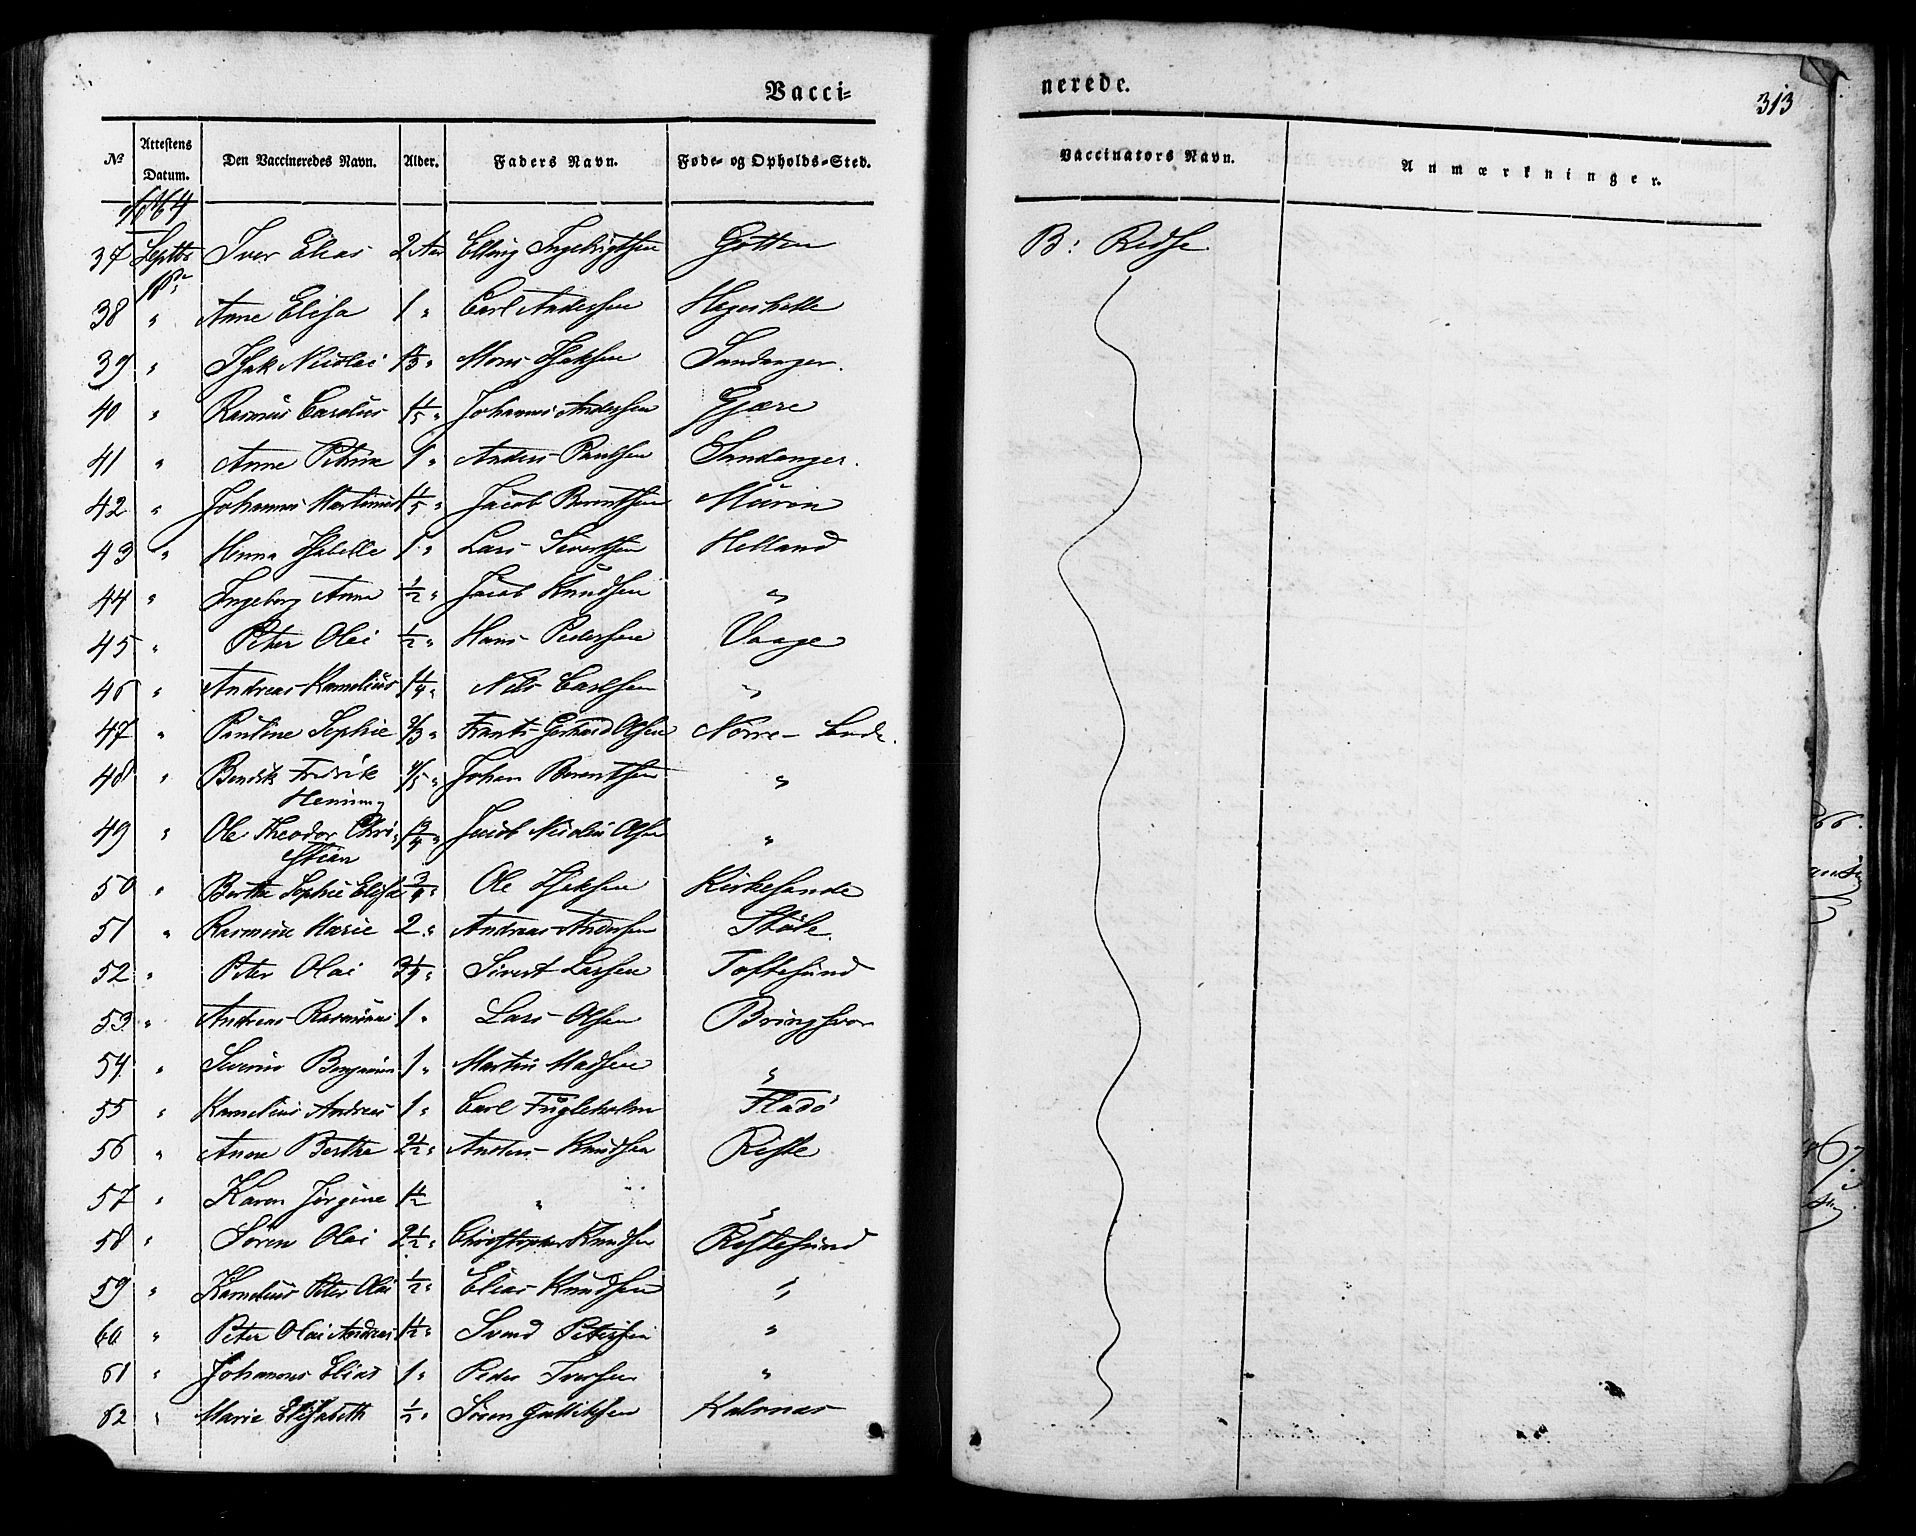 Vacci=
nerede.
313
№ Attestens Datum. Den Vaccineredes Navn. Alder. Faders Navn. Føde- og Opholds-Sted. Vaccinators Navn. Anmærkninger.
1864
37 Septbr Iver Elias 2 Aar Elling Ingebrigtsen Gotten B: Redse
38 " Anne Elisa 1 " Carl Andersen
39 " Isak Nicolai " Mons Isaksen Sandanger.
40 " Rasmus Carolus 1 1/5 " Johannes Andersen Gjære
41 " Anne Petrine 1 " Anders Paulsen Sandanger.
42 " Johannes Martinus 1 1/5 " Jacob Berntsen Muren
43 " Anna Isabelle 1 " Lars Sivertsen Helland
44 " Ingeborg Anna 1/2 " Jacob Knudsen "
45 " Peter Olai 1/2 " Hans Pedersen Vaage
46 " Andreas Kornelius 1 1/4 " Nils Carlsen "
47 " Pauline Sophie 2/3 " Frants Gerhard Olsen Nørre-Sande.
48 " Bendik Fredrik 4/5 " Johan Berentsen "
Henning
49 " Ole Theodor Chri- " Jacob Nicolai Olsen "
stian
50 " Berthe Sophie Elisa 3/4 " Ole Isaksen Kirkesande
51 " Rasmine Marie 2 " Andreas Andersen Støle.
52 " Peter Olai 3 1/4 " Sivert Larsen Toftesund
53 " Andreas Rasmus 1 " Lars Olsen Bringsvor
54 " Severin Benjamin 1 " Martin Madsen "
55 " Kornelius Andreas 1 " Carl Fugleholm Fladø
56 " Anne Berthe 2 1/2 " Anders Knudsen Riste
57 " Karen Jørgine 1 1/2 " " "
58 " Søren Olai 2 1/2 " Christopher Knudsen Ristesund
59 " Kornelius Peter Olai 1/2 " Elias Knudsen "
60 " Peter Olai Andreas 1 1/2 " Svend Petersen "
61 " Johannes Elias 1 " Peder Iversen "
62 " Marie Elisabeth 1/2 " Søren Gulliksen Kalvnæs